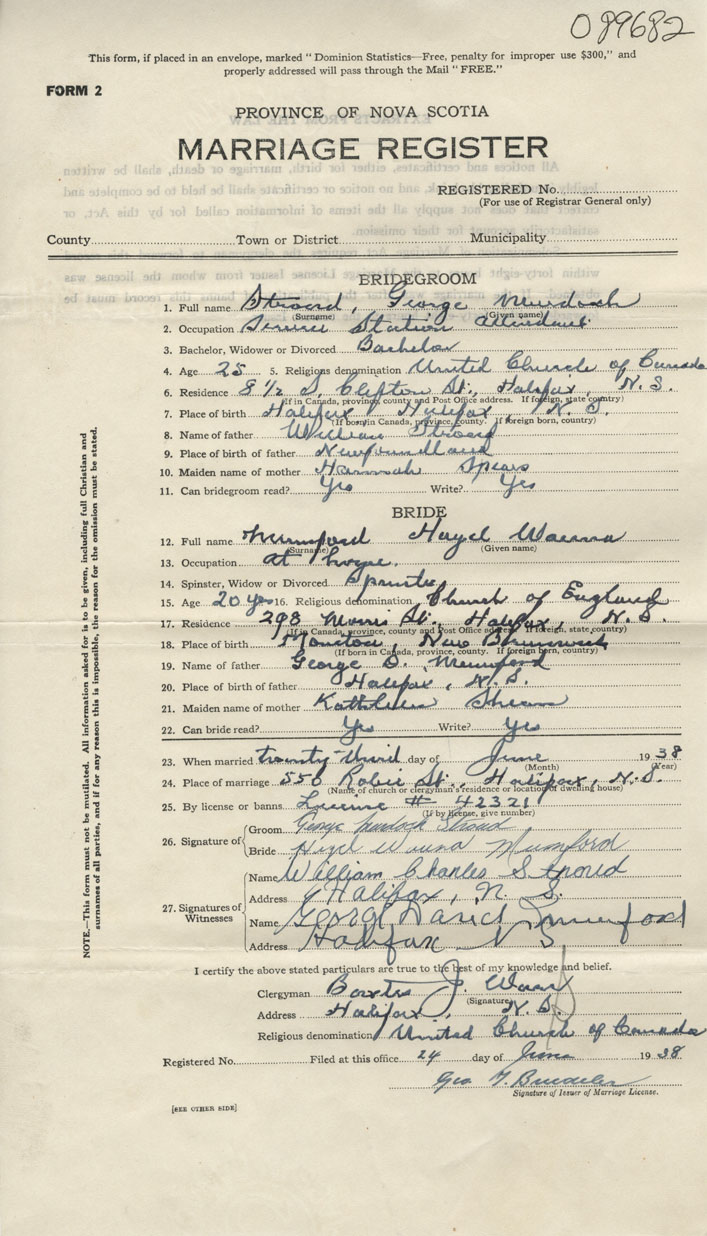 089682
This form, if placed in an envelope, marked "Dominion Statistics—Free, penalty for improper use $300," and
properly addressed will pass through the Mail "FREE."
FORM 2
PROVINCE OF NOVA SCOTIA
MARRIAGE REGISTER
REGISTERED No.
(For use of Registrar General only)
County Town or District Municipality
BRIDEGROOM
1. Full name Stroud, George Murdoch
(Surname) (Given name)
2. Occupation Service Station Attendant
3. Bachelor, Widower or Divorced Bachelor
4. Age 25 5. Religious denomination United Church of Canada
6. Residence 8 1/2 S. Clifton St., Halifax, N.S.
(If in Canada, province, county and Post Office address. If foreign, state country)
7. Place of birth Halifax Halifax, N.S.
(If born in Canada, province, county. If foreign born, country)
8. Name of father William Stroud
9. Place of birth of father Newfoundland
10. Maiden name of mother Hannah Spears
11. Can bridegroom read? Yes Write? Yes
BRIDE
12. Full name Mumford Hazel Waunna
(Surname) (Given name)
13. Occupation at home.
14. Spinster, Widow or Divorced Spinster
15. Age 20 yrs 16. Religious denomination Church of England
17. Residence 298 Morris St., Halifax, N.S.
(If in Canada, province, county and Post Office address. If foreign, state country)
18. Place of birth Moncton, New Brunswick
(If born in Canada, province, county. If foreign born, country)
19. Name of father George D. Mumford
20. Place of birth of father Halifax, N.S.
21. Maiden name of mother Kathleen
22. Can bride read? Yes Write? Yes
23. When married twenty-third day of June 1938
(Month) (Year)
24. Place of marriage 550 Robie St., Halifax, N.S.
(Name of church or clergyman's residence or location of dwelling house)
25. By license or banns License # 42321
(If by license, give number)
26. Signature of
Groom George Murdock Stroud
Bride Hazel Mumford
27. Signatures of Witnesses
Name William Charles Stroud
Address Halifax, N. S.
Name George David Mumford
Address Halifax N S
I certify the above stated particulars are true to the best of my knowledge and belief.
Clergyman J.
(Signature)
Address Halifax, N.S.
Religious denomination United Church of Canada
Registered No. Filed at this office 24 day of June 1938
Geo
Signature of Issuer of Marriage License.
[SEE OTHER SIDE]
NOTE.—This form must not be mutilated. All information asked for is to be given, including full Christian and
surnames of all parties, and if for any reason this is impossible, the reason for the omission must be stated.